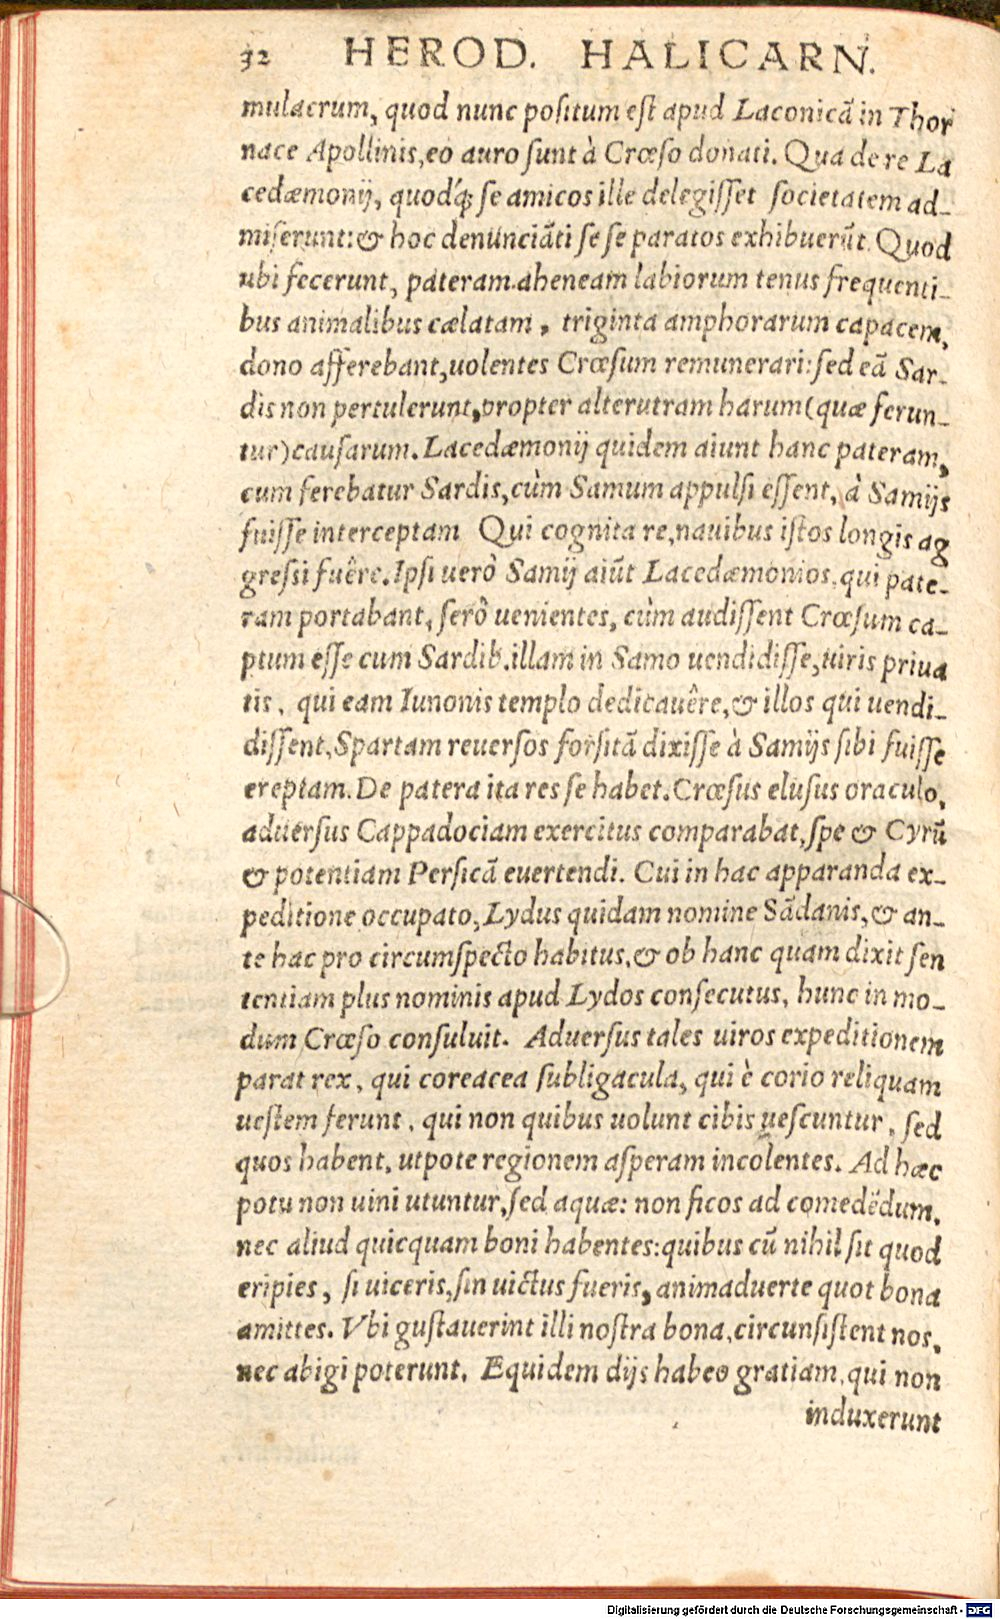 32 HEROD. HALICARN.
mulacrum, quod nunc positum est apud Laconicã in Thor
nace Apollinis, eo auro sunt à Crœso donati. Qua de re La
cedæmonij, quodq́; se amicos ille delegisset societatem ad-
miserunt: & hoc denunciãti se se paratos exhibuerũt. Quod
ubi fecerunt, pateram aheneam labiorum tenus frequenti-
bus animalibus cælatam, triginta amphorarum capacem,
dono afferebant, uolentes Crœsum remunerari: sed eã Sar-
dis non pertulerunt, propter alterutram harum (quæ ferun-
tur) causarum. Lacedæmonij quidem aiunt hanc pateram,
cum ferebatur Sardis, cùm Samum appulsi essent, à Samijs
fuisse interceptam Qui cognita re, nauibus istos longis ag
gressi fuêre. Ipsi uerò Samij aiũt Lacedæmonios, qui pate-
ram portabant, serò uenientes, cùm audissent Crœsum ca-
ptum esse cum Sardib. illam in Samo uendidisse, uiris priua
tis, qui eam Iunonis templo dedicauêre, & illos qui uendi-
dissent, Spartam reuersos forsitã dixisse à Samijs sibi fuisse
ereptam. De patera ita res se habet. Crœsus elusus oraculo,
aduersus Cappadociam exercitus comparabat, spe & Cyrũ
& potentiam Persicã euertendi. Cui in hac apparanda ex-
peditione occupato, Lydus quidam nomine Sãdanis, & an-
te hac pro circumspecto habitus, & ob hanc quam dixit sen
tentiam plus nominis apud Lydos consecutus, hunc in mo-
dum Crœso consuluit. Aduersus tales uiros expeditionem
parat rex, qui coreacea subligacula, qui è corio reliquam
uestem ferunt, qui non quibus uolunt cibis uescuntur, sed
quos habent, utpote regionem asperam incolentes. Ad hæc
potu non uini utuntur, sed aquæ: non ficos ad comedẽdum,
nec aliud quicquam boni habentes: quibus cũ nihil sit quod
eripies, si uiceris, sin uictus fueris, animaduerte quot bona
amittes. Vbi gustauerint illi nostra bona, circunsistent nos,
nec abigi poterunt. Equidem dijs habeo gratiam, qui non
induxerunt
Digitalisierung gefördert durch die Deutsche Forschungsgemeinschaft - DFG